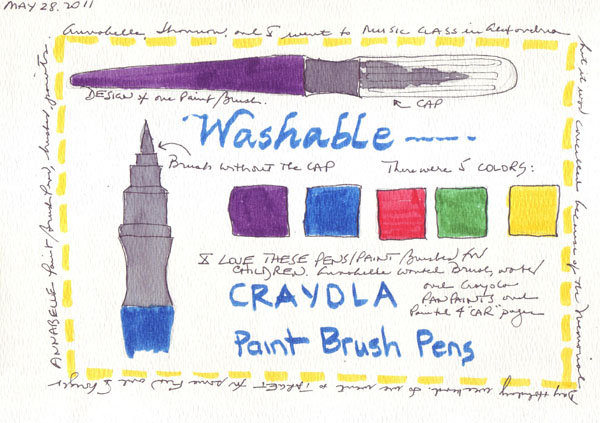 MAY 28, 2011
Annabelle, Shannon, and I went to MUSIC CLASS in Alexandria
but it was cancelled because of the Memorial
Day Holiday weekend. So we went to TARGET for some
ANNABELLE Paint/Brush Pens, brushes, paints.
DESIGN of one Paint/Brush.
CAP
Washable
Brush without the CAP
There were 5 COLORS:
I LOVE THESE PENS/PAINT/Brushes for
CHILDREN. Annabelle wanted Brush, water
and Crayola
PAN PAINTS and
painted 4 "CAR" pages
CRAYOLA
Paint Brush Pens